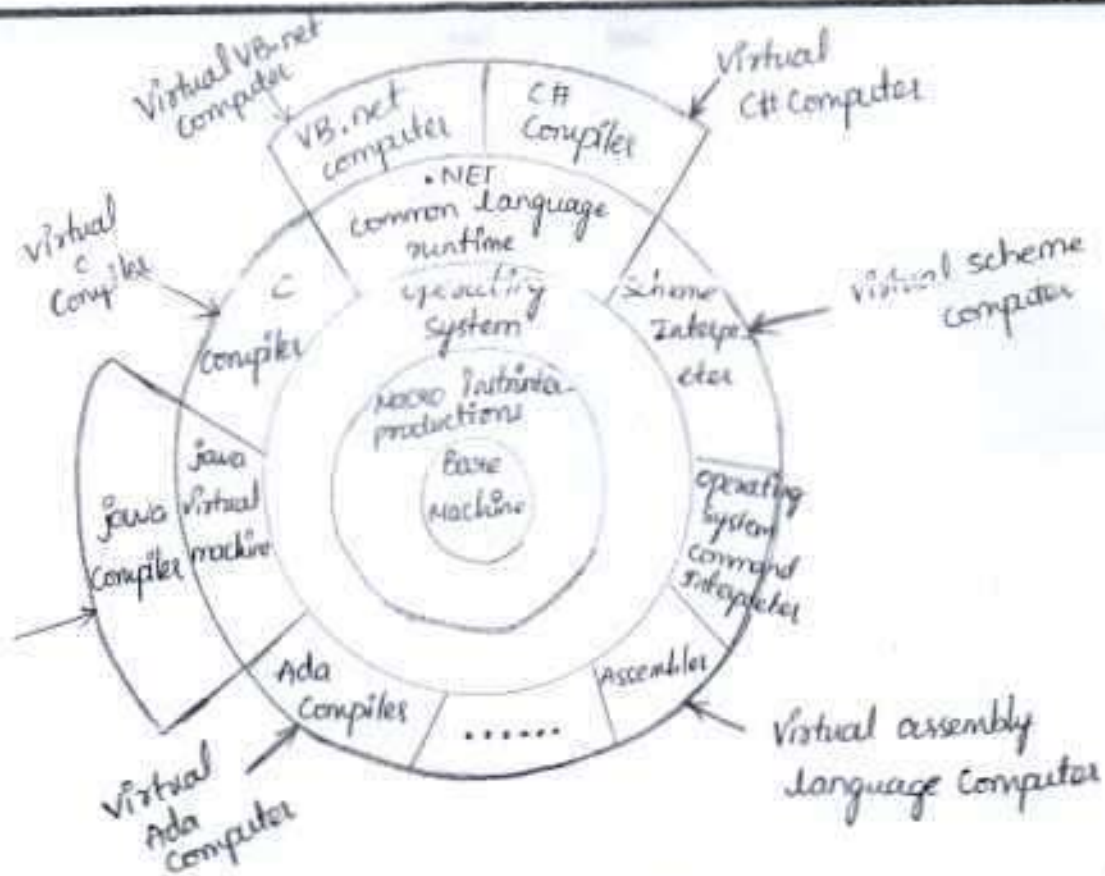 Virtual VB.net
computer
VB.net
computer
C#
Compiler
Virtual
C# Computer
.NET
common language
runtime
virtual
C
Compiler
C
compiler
system
Scheme
Interpr-
eter
virtual scheme
computer
Macro
productions
Bare
Machine
java
virtual
machine
java
compiler
operating
system
command
Interpreter
Ada
Compiler
......
Assembler
Virtual assembly
language Computer
Virtual
Ada
computer